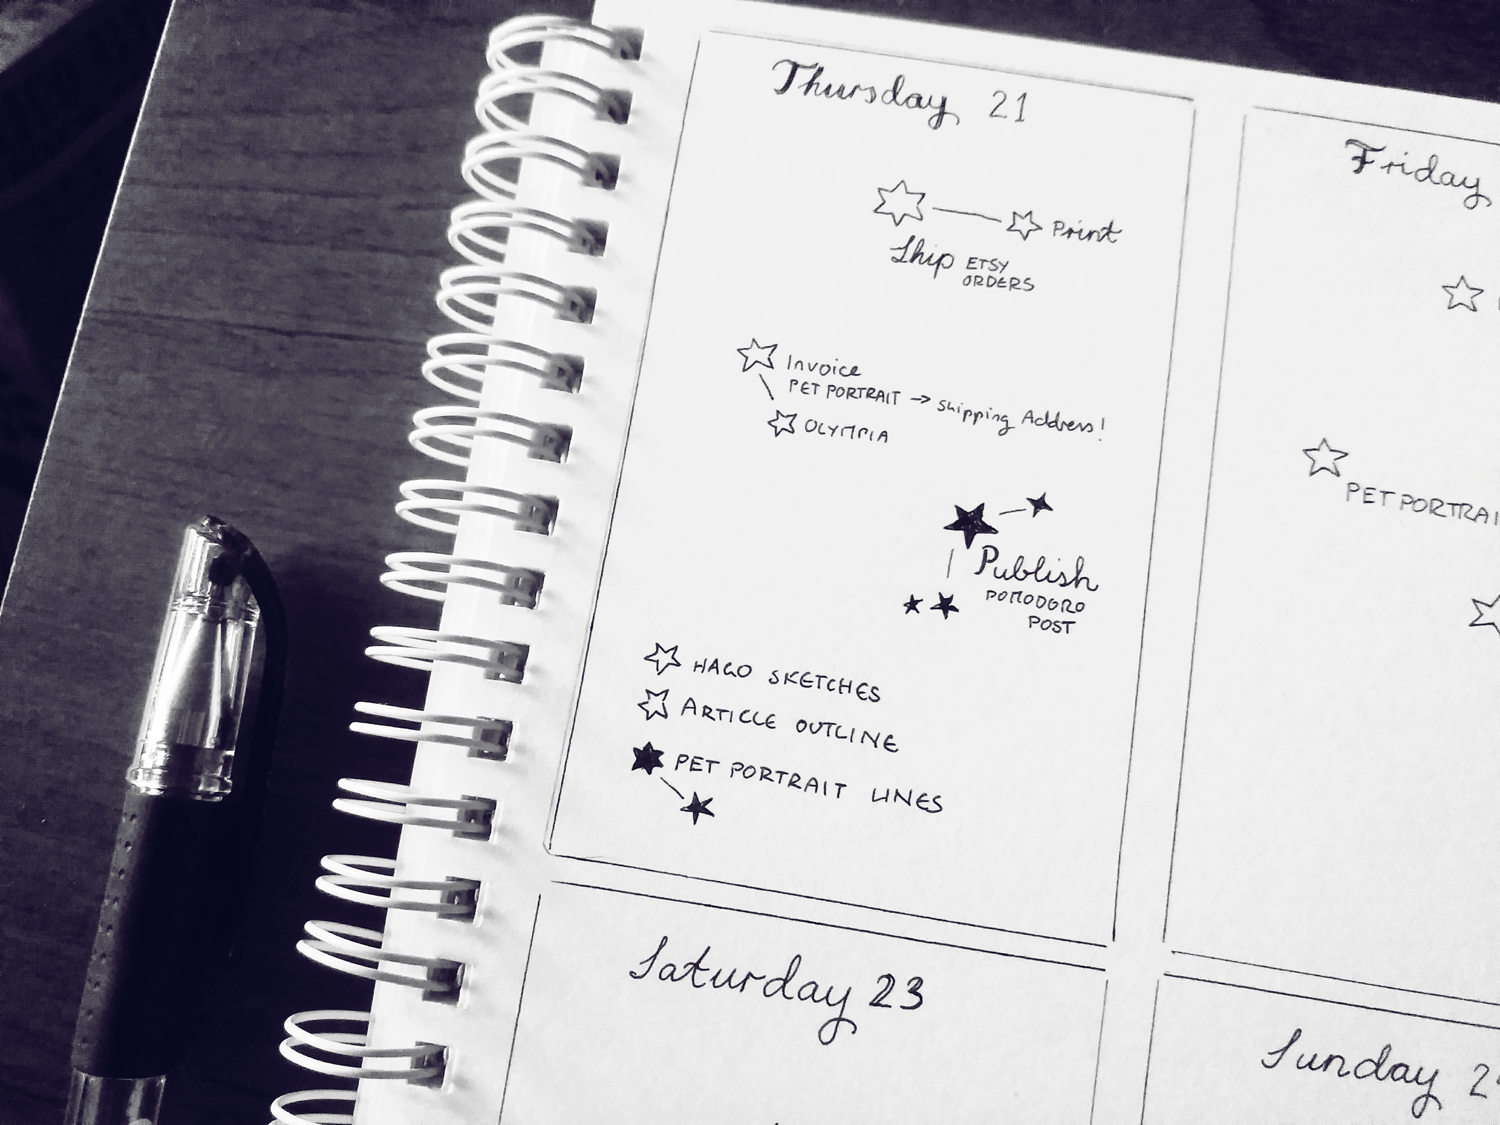 Thursday 21
Print
Ship ETSY
ORDERS
Invoice
PET PORTRAIT → Shipping Address!
OLYMPIA
Publish
POMODORO
POST
HAGO SKETCHES
ARTICLE OUTLINE
PET PORTRAIT LINES
Friday
PET PORTRAI
Saturday 23
Sunday 2